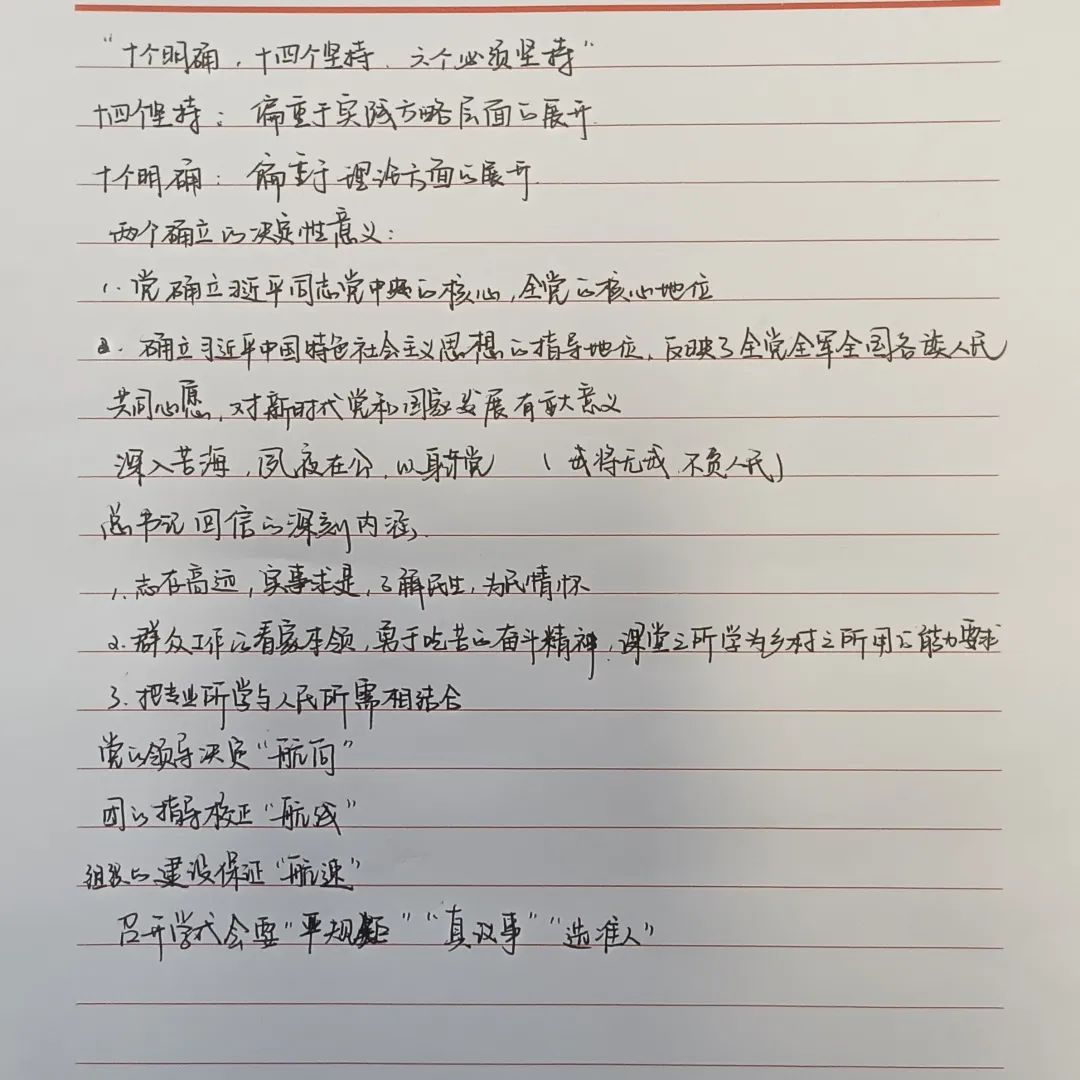 “十个明确，十四个坚持、六个必须坚持”
十四个坚持：偏重于实践方略层面的展开
十个明确：偏重于理论方面的展开.
两个确立的决定性意义：
1. 党确立习近平同志党中央的核心，全党的核心地位
2. 确立习近平中国特色社会主义思想的指导地位，反映了全党全军全国各族人民
共同心愿，对新时代党和国家发展有重大意义
深入苦海，夙夜在公，以身许党 （我将无我 不负人民）
总书记回信的深刻内涵.
1. 志存高远，实事求是，了解民生，为民情怀
2. 群众工作的看家本领，勇于吃苦的奋斗精神，课堂之所学为乡村之所用的能力要求
3. 把专业所学与人民所需相结合
党的领导决定“航向”
团的指导校正“航线”
组织的建设保证“航速”
召开学代会要“严规矩”“真议事”“选准人”